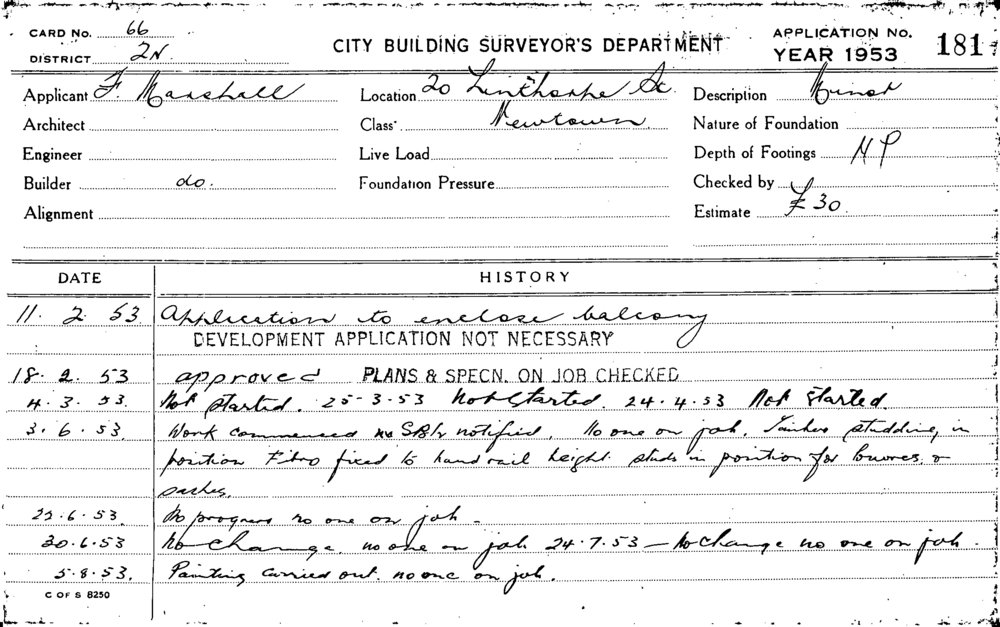 CARD No. 66
DISTRICT 2N.
CITY BUILDING SURVEYOR'S DEPARTMENT
APPLICATION No.
YEAR 1953
181
Applicant F. Marshall
Location 20 Linthorpe St.
Description Minor
Architect
Class Newtown
Nature of Foundation
Engineer
Live Load
Depth of Footings HP
Builder do.
Foundation Pressure
Checked by
Alignment
Estimate £30
DATE
HISTORY
11. 2. 53 Application to enclose balcony
DEVELOPMENT APPLICATION NOT NECESSARY
18. 2. 53 approved PLANS & SPECN. ON JOB CHECKED
4. 3. 53. Not started. 25-3-53 Not Started. 24.4.53 Not Started.
3. 6. 53. Work commenced notified. No one on job. Timber studding in
position Fibro fixed to hand rail height studs in position for louvres &
sashes.
22.6.53. No progress no one on job.
30.6.53 No change, no one on job 24.7.53 — No change no one on job.
5.8.53. Painting carried out. no one on job.
C OF S 8250